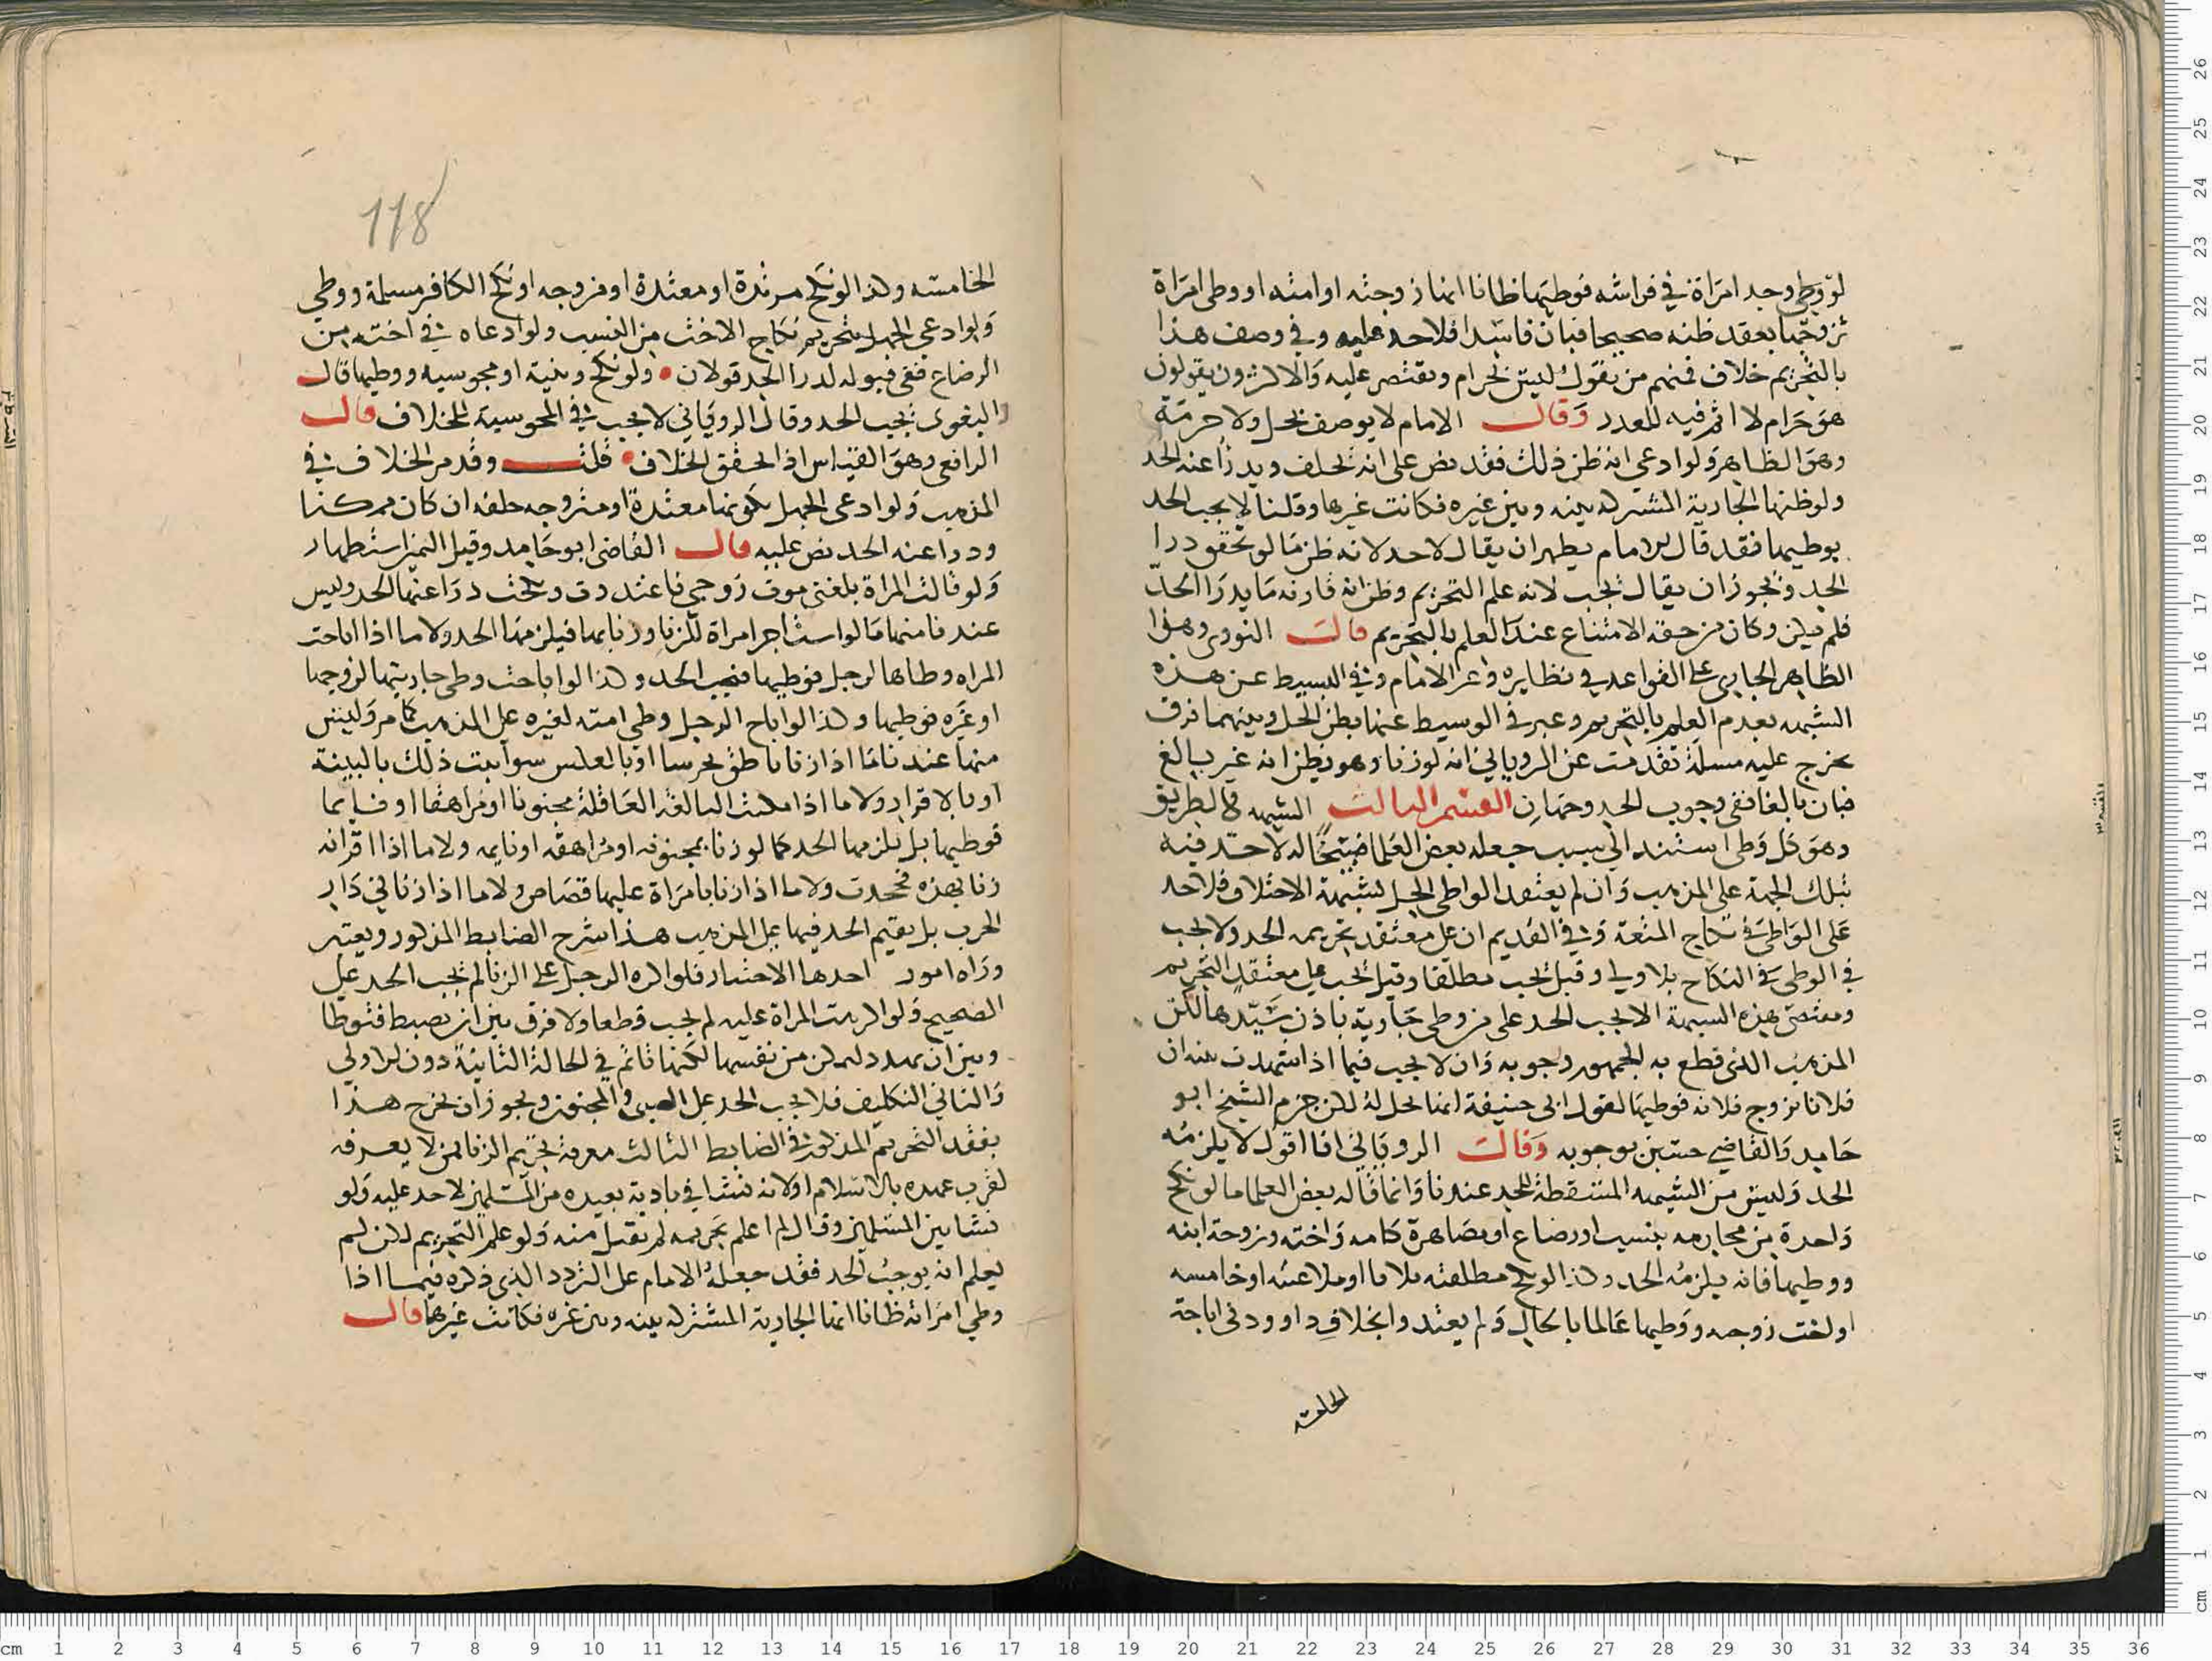 لو وطي وجد امراة في فراشه فوطيها ظانا انها زوجته او امته او وطي امراة
تزوجها بعقد ظنه صحيحا فبان فاسدا فلا حد عليه وفي وصف هذا
بالتحريم خلاف فمنهم من يقول ليس بحرام ويقتصر عليه والاكثرون يقولون
هو حرام لا اثم فيه للعدد وقال الامام لا يوصف بحل ولا حرمة
وهو الظاهر ولو ادعى انه ظن ذلك فقد نص على انه يحلف ويدرا عنه الحد
ولو ظنها الجارية المشتركه بينه وبين غيره فكانت غيرها وقلنا لا يجب الحد
بوطيها فقد قال الامام يظهر ان يقال لا حد لانه ظن ما لو تحقق درا
الحد ويجوز ان يقال يجب لانه علم التحريم وظن انه قارنه ما يدرا الحد
فلم يكن وكان من حقه الامتناع عند العلم بالتحريم قال النووي وهذا
الظاهر الجاري على القواعد في نظايره وعبر الامام وفي البسيط عن هذه
الشبهه بعدم العلم بالتحريم وعبر في الوسيط عنها بظن الحل وبينهما فرق
يخرج عليه مسلة تقدمت عن الروياني انه لو زنا وهو يظن انه غير بالغ
فبان بالغا ففي وجوب الحد وجهان القسم الثالث الشبهه في الطريق
وهو كل وطي استند الى سبب جعله بعض العلما مبيحا له لا حد فيه
بتلك الجهة على المذهب وان لم يعتقد الواطي الحل لشبهة الاختلاف فلا حد
على الواطي في نكاح المتعة وفي القديم ان على معتقد تحريمه الحد ولا يجب
في الوطي في النكاح بلا ولي وقيل يجب مطلقا وقيل يجب على معتقد التحريم
ومقتضى هذه الشبهة الا يجب الحد على من وطي جارية باذن سيدها لكن
المذهب الذي قطع به الجمهور وجوبه وان لا يجب فيما اذا شهدت بينه ان
فلانا تزوج فلانه فوطيها لقول ابي حنيفة انها تحل له لكن جزم الشيخ ابو
حامد والقاضي حسين بوجوبه وقال الروياني انا اقول لا يلزمه
الحد وليس من الشبهه المسقطة للحد عندنا وانما قاله بعض العلما ما لو نكح
واحدة من محارمه بنسب او رضاع او مصاهرة كامه واخته وزوجة ابنه
ووطيها فانه يلزمه الحد وكذا لو نكح مطلقته ثلاثا او ملاعنته او خامسه
او اخت زوجه ووطيها عالما بالحال ولم يعتدوا بخلاف داوود في اباحة
الخامسه
118
الخامسه وكذا لو نكح مرتدة او معتدة او مزوجه او نكح الكافر مسلمة ووطي
ولو ادعى الجهل بتحريم نكاح الاخت من النسب ولو ادعاه في اخته من
الرضاع ففي قبوله لدرا الحد قولان ولو نكح وثنية او مجوسيه ووطيها قال
البغوى يجب الحد وقال الروياني لا يجب في المجوسية للخلاف قال
الرافعي وهو القياس اذا تحقق الخلاف قلت وقد مر الخلاف في
المذهب ولو ادعى الجهل بكونها معتدة او متزوجه حلف ان كان ممكنا
ودرا عنه الحد نص عليه قال القاضي ابو حامد وقيل اليمين استظهار
ولو قالت المراة بلغني موت زوجي فاعتددت ونكحت درا عنها الحد وليس
عندنا منها ما لو استاجر امراة للزنا وزنا بها فيلزمها الحد ولا ما اذا اباحت
المراه وطاها لرجل فوطيها فيجب الحد وكذا لو اباحت وطي جاريتها لزوجها
او غيره فوطيها وكذا لو اباح الرجل وطي امته لغيره على المذهب كما مر وليس
منها عندنا ما اذا زنا ناطق بخرسا او بالعكس سوا ثبت ذلك بالبينة
او بالاقرار ولا ما اذا مكنت البالغة العاقلة مجنونا او مراهقا او نايما
فوطيها بل يلزمها الحد كما لو زنا بمجنونه او مراهقه او نايمه ولا ما اذا اقر انه
زنا بهذه فجحدت ولا ما اذا زنا بامراة عليها قصاص ولا ما اذا زنا في دار
الحرب بل يقيم الحد فيها على المذهب هذا شرح الضابط المذكور ويعتبر
وراه امور احدها الاختيار فلو اكره الرجل على الزنا لم يجب الحد على
الصحيح ولو اكرهت المراة عليه لم يجب قطعا ولا فرق بين ان تضبط فتوطا
وبين ان تهدد لتمكن من نفسها لكنها تاثم في الحالة الثانية دون الاولى
والثاني التكليف فلا يجب الحد على الصبي والمجنون ويجوز ان يخرج هذا
بفقد التحريم المذكور في الضابط الثالث معرفة تحريم الزنا فمن لا يعرفه
لقرب عهده بالاسلام او لانه نشا في بادية بعيده من المسلمين لا حد عليه ولو
نشا بين المسلمين وقال لم اعلم تحريمه لم يقبل منه ولو علم التحريم لكن لم
يعلم انه يوجب الحد فقد جعله الامام على التردد الذي ذكره فيما اذا
وطي امراته ظانا انها الجارية المشتركه بينه وبين غيره فكانت غيرها قال